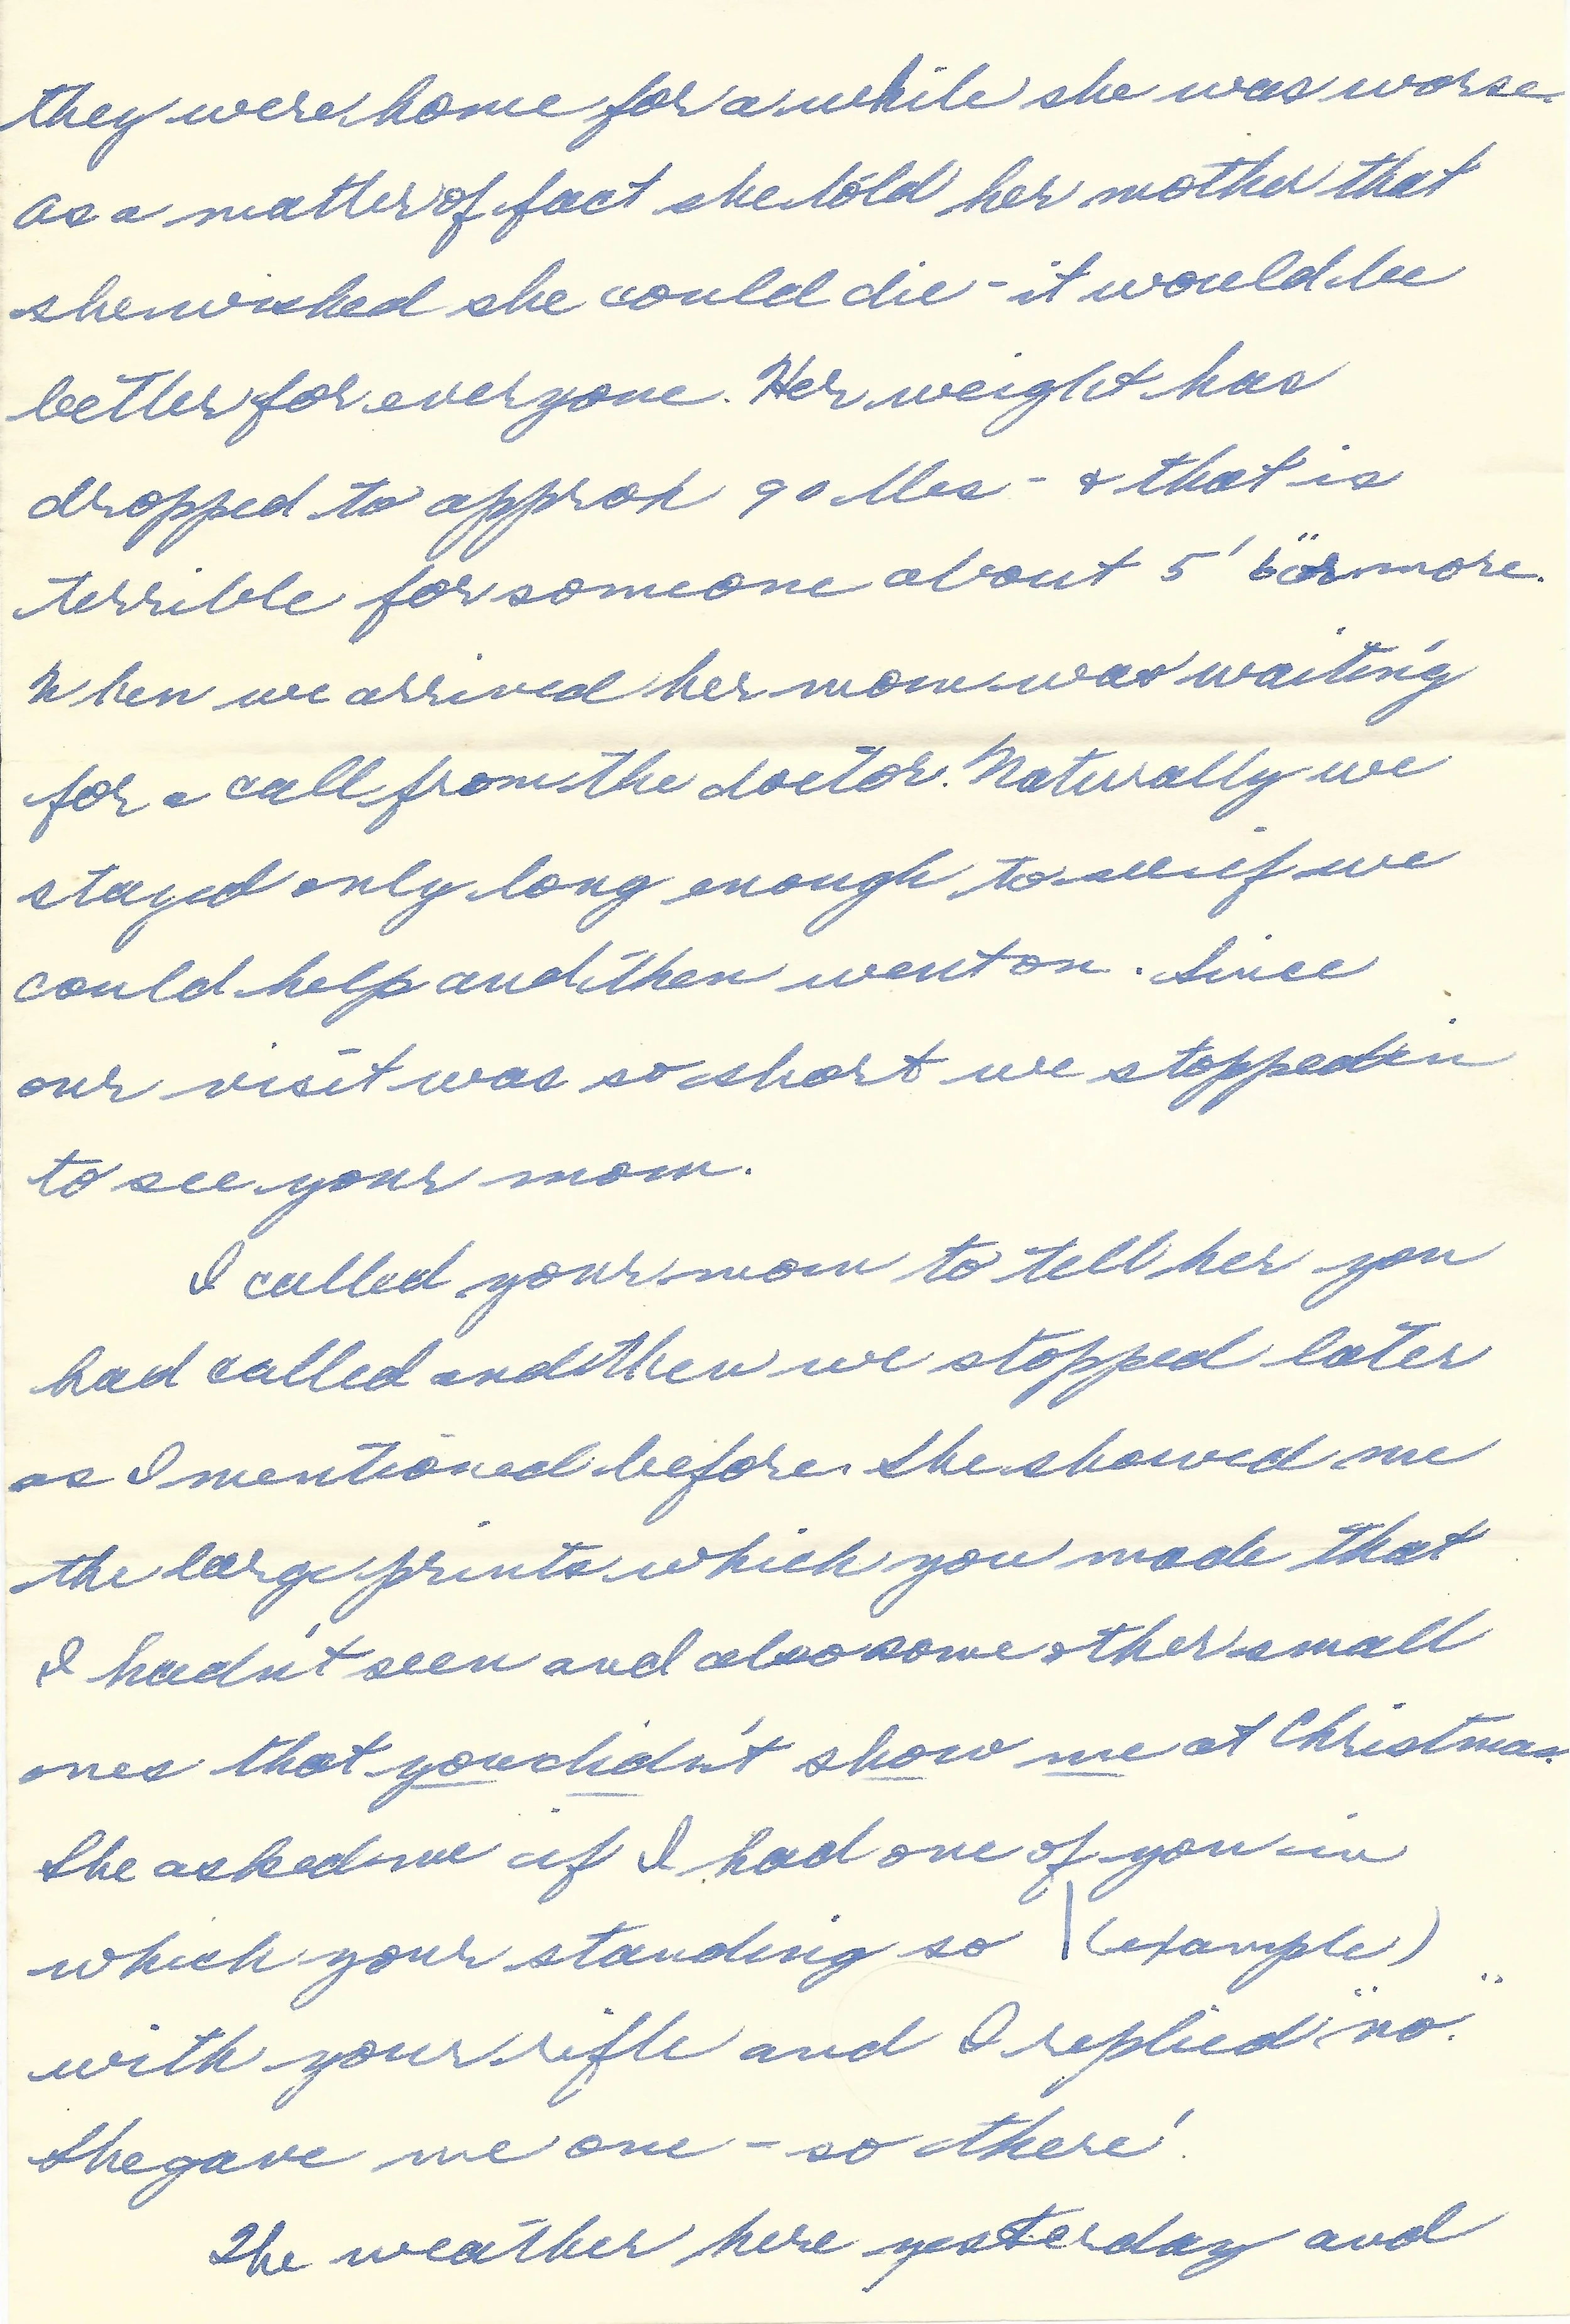 they were home for a while she was worse.
As a matter of fact she told her mother that
she wished she could die - it would be
better for everyone. Her weight has
dropped to approx 90 lbs - & that is
terrible for someone about 5' 6" or more.
When we arrived her mom was waiting
for a call from the doctor. Naturally we
stayed only long enough to see if we
could help and then went on. Since
our visit was so short we stopped in
to see your mom.
I called your mom to tell her you
had called and then we stopped later
as I mentioned before. She showed me
the large prints which you made that
I hadn't seen and also some other small
ones that you didn't show me at Christmas.
She asked me if I had one of you in
which your standing so | (example)
with your rifle and I replied "no."
She gave me one - so there!
The weather here yesterday and